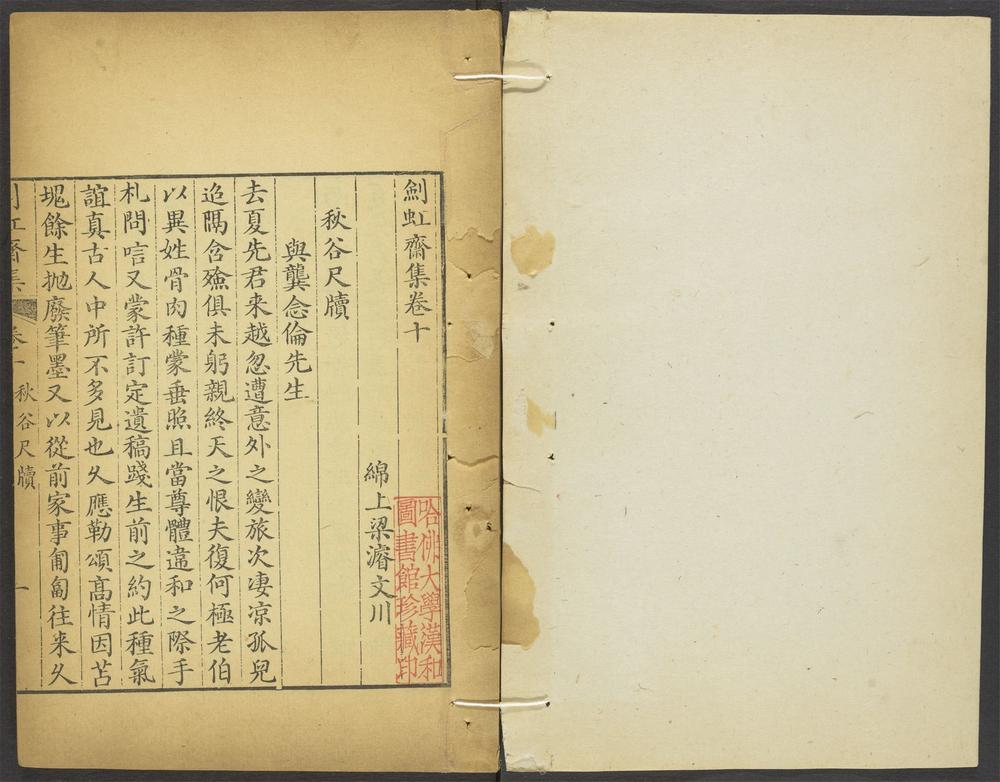 劍虹齋集卷十
綿上梁濬文川
秋谷尺牘
與龔念倫先生
去夏先君来越忽遭意外之變旅次凄凉孤兒
迨隅含殮俱未躬親終天之恨夫復何極老伯
以異姓骨肉種蒙垂照且當尊體違和之際手
札問唁又蒙許訂定遺稿踐生前之約此種氣
誼真古人中所不多見也久應勒頌高情因苫
堍餘生抛廢筆墨又以從前家事匍匐往来久
虹齋集
秋谷尺牘
一
哈佛大學漢和
圖書館珍藏印